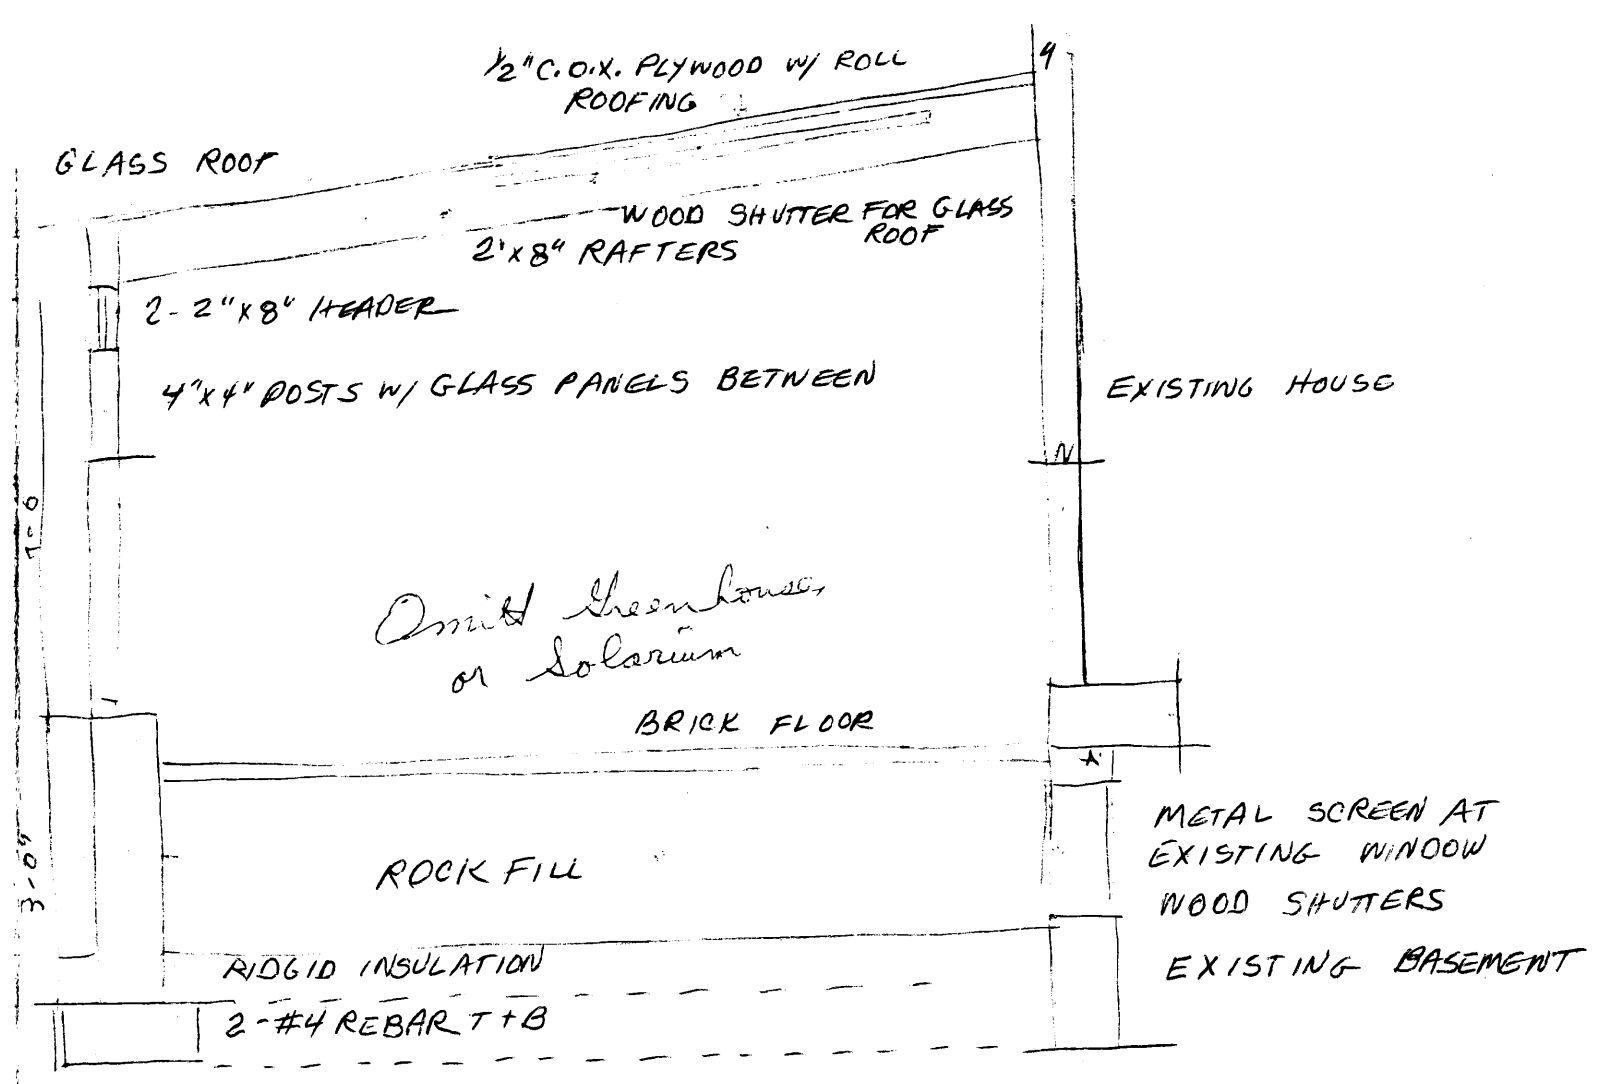 1/2" C.O.X. PLYWOOD W/ ROLL
ROOFING
GLASS ROOF
WOOD SHUTTER FOR GLASS
ROOF
2'x8" RAFTERS
2-2"x8" HEADER
4"x4" POSTS W/ GLASS PANELS BETWEEN
EXISTING HOUSE
7-6
Omitt Greenhouse,
or Solarium
BRICK FLOOR
3-0"
ROCK FILL
METAL SCREEN AT
EXISTING WINDOW
WOOD SHUTTERS
RIDGID INSULATION
EXISTING BASEMENT
2-#4 REBAR T+B